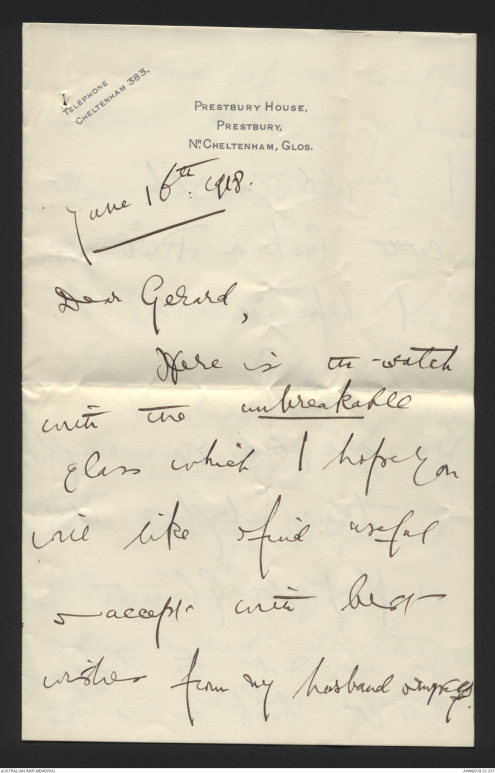 TELEPHONE
CHELTENHAM 383.
PRESTBURY HOUSE,
PRESTBURY,
NR CHELTENHAM, GLOS.
June 16th. 1918.
Dear Gerard,
Here is the watch
with the unbreakable
glass which I hope you
will like & find useful
& accept with best
wishes from my husband & myself.
AUSTRALIAN WAR MEMORIAL